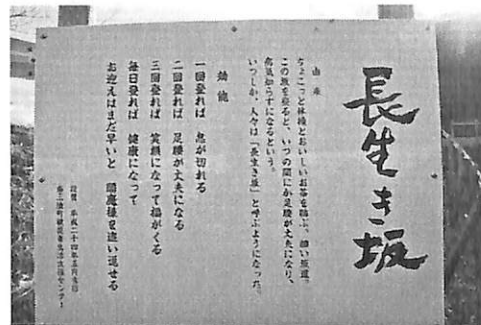 長生き坂
由来
ちょこっと体操とおいしいお茶を結ぶ、細い坂道。
この坂を登ると、いつの間にか足腰が丈夫になり、
病気知らずになるという。
いつしか、人々は「長生き坂」と呼ぶようになった。
効能
一回登れば 息が切れる
二回登れば 足腰が丈夫になる
三回登れば 笑顔になって福がくる
毎日登れば 健康になって
お迎えはまだ早いと 閻魔様を追い返せる
設置 平成二十四年五月吉日
南三陸町被災者生活支援センター